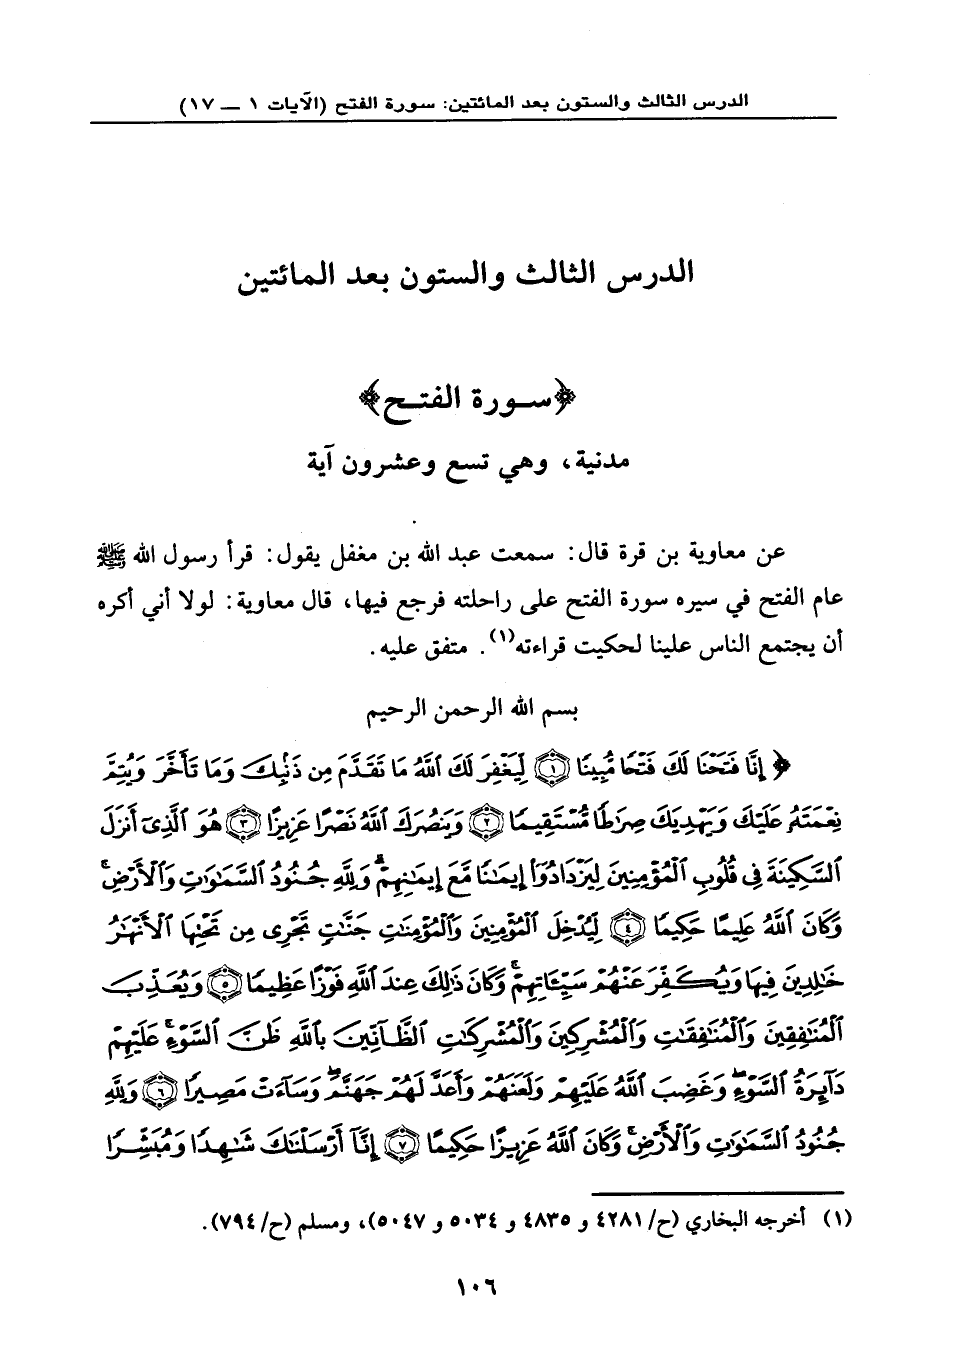 الدرس الثالث والستون بعد المائتين: سورة الفتح (الآيات ١ — ١٧)
الدرس الثالث والستون بعد المائتين
﴿سورة الفتح﴾
مدنية، وهي تسع وعشرون آية
عن معاوية بن قرة قال: سمعت عبد الله بن مغفل يقول: قرأ رسول الله ﷺ
عام الفتح في سيره سورة الفتح على راحلته فرجع فيها، قال معاوية: لولا أني أكره
أن يجتمع الناس علينا لحكيت قراءته(١). متفق عليه.
بسم الله الرحمن الرحيم
﴿ إِنَّا فَتَحْنَا لَكَ فَتْحًا مُّبِينًا ۝١ لِّيَغْفِرَ لَكَ ٱللَّهُ مَا تَقَدَّمَ مِن ذَنۢبِكَ وَمَا تَأَخَّرَ وَيُتِمَّ
نِعْمَتَهُۥ عَلَيْكَ وَيَهْدِيَكَ صِرَٰطًا مُّسْتَقِيمًا ۝٢ وَيَنصُرَكَ ٱللَّهُ نَصْرًا عَزِيزًا ۝٣ هُوَ ٱلَّذِىٓ أَنزَلَ
ٱلسَّكِينَةَ فِى قُلُوبِ ٱلْمُؤْمِنِينَ لِيَزْدَادُوٓا۟ إِيمَٰنًا مَّعَ إِيمَٰنِهِمْ ۗ وَلِلَّهِ جُنُودُ ٱلسَّمَٰوَٰتِ وَٱلْأَرْضِ ۚ
وَكَانَ ٱللَّهُ عَلِيمًا حَكِيمًا ۝٤ لِّيُدْخِلَ ٱلْمُؤْمِنِينَ وَٱلْمُؤْمِنَٰتِ جَنَّٰتٍ تَجْرِى مِن تَحْتِهَا ٱلْأَنْهَٰرُ
خَٰلِدِينَ فِيهَا وَيُكَفِّرَ عَنْهُمْ سَيِّـَٔاتِهِمْ ۚ وَكَانَ ذَٰلِكَ عِندَ ٱللَّهِ فَوْزًا عَظِيمًا ۝٥ وَيُعَذِّبَ
ٱلْمُنَٰفِقِينَ وَٱلْمُنَٰفِقَٰتِ وَٱلْمُشْرِكِينَ وَٱلْمُشْرِكَٰتِ ٱلظَّآنِّينَ بِٱللَّهِ ظَنَّ ٱلسَّوْءِ ۚ عَلَيْهِمْ
دَآئِرَةُ ٱلسَّوْءِ ۖ وَغَضِبَ ٱللَّهُ عَلَيْهِمْ وَلَعَنَهُمْ وَأَعَدَّ لَهُمْ جَهَنَّمَ ۖ وَسَآءَتْ مَصِيرًا ۝٦ وَلِلَّهِ
جُنُودُ ٱلسَّمَٰوَٰتِ وَٱلْأَرْضِ ۚ وَكَانَ ٱللَّهُ عَزِيزًا حَكِيمًا ۝٧ إِنَّآ أَرْسَلْنَٰكَ شَٰهِدًا وَمُبَشِّرًا
(١) أخرجه البخاري (ح/ ٤٢٨١ و ٤٨٣٥ و ٥٠٣٤ و ٥٠٤٧)، ومسلم (ح/ ٧٩٤).
١٠٦